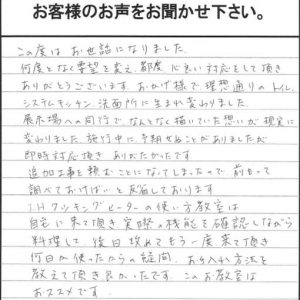 お客様のお声をお聞かせ下さい。
この度は お世話になりました
何度となく要望を変え、都度 心良い対応をして頂き
ありがとうございます。おかげ様で 理想通りの トイレ、
システムキッチン、洗面所に 生まれ変わりました。
展示場への同行で なんとなく描いていた想いが 現実に
変わりました。施行中に、予期せぬことがありましたが
即時対応頂き ありがたかったです
追加工事を頼むことになってしまったので 前もって
調べておけばいと反省しております
I.Hクッキングヒーターの使い方教室は
自宅に来て頂き 実際の機能を確認しながら
料理して、後日 改めて もう一度来て頂き
何日か使ったからの疑問、お手入れ方法を
教えて頂き良かったです。このお教室は
おススメです.